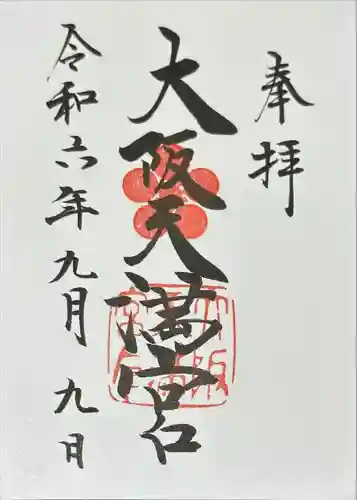 奉拝
大阪天満宮
令和六年九月九日